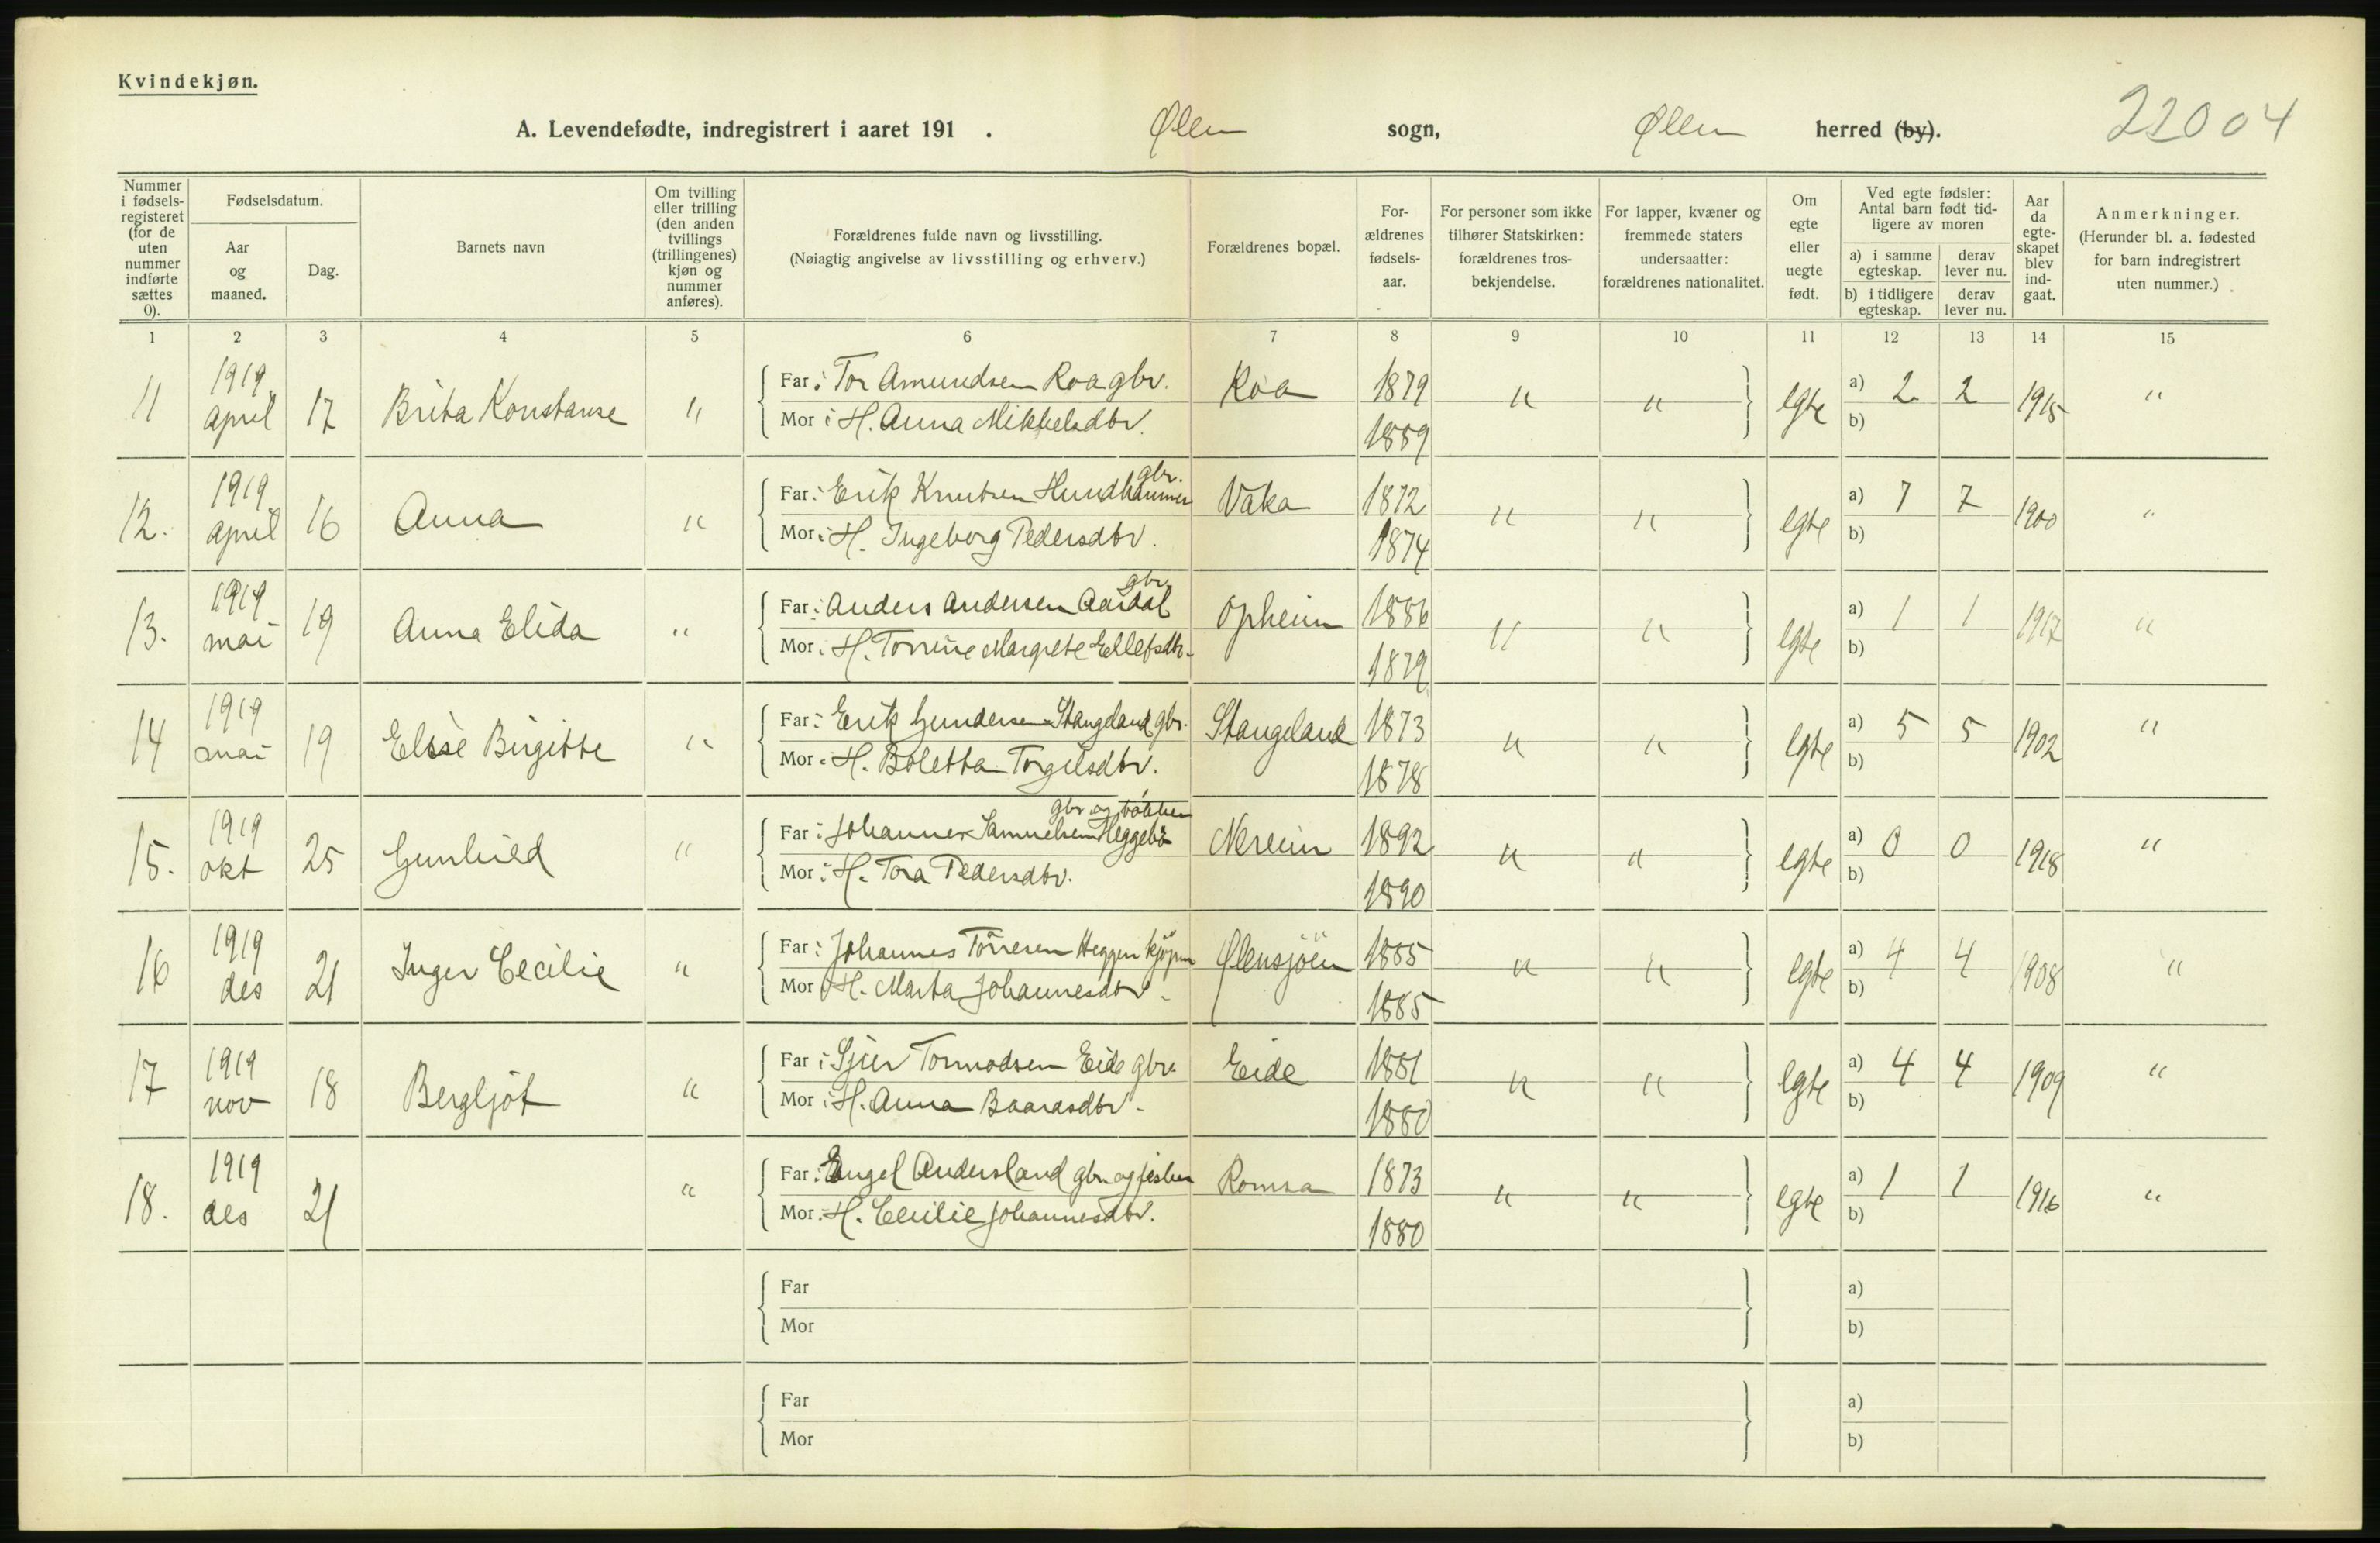 Kvindekjøn.
A. Levendefødte, indregistrert i aaret 191 . Ølen sogn, Ølen herred (by). 22004
Nummer i fødsels-registeret (for de uten nummer indførte sættes 0).
Fødselsdatum.
Aar og maaned.
Dag.
Barnets navn
Om tvilling eller trilling (den anden tvillings (trillingenes) kjøn og nummer anføres).
Forældrenes fulde navn og livsstilling.
(Nøiagtig angivelse av livsstilling og erhverv.)
Forældrenes bopæl.
For-ældrenes fødsels-aar.
For personer som ikke tilhører Statskirken: forældrenes tros-bekjendelse.
For lapper, kvæner og fremmede staters undersaatter: forældrenes nationalitet.
Om egte eller uegte født.
Ved egte fødsler: Antal barn født tid-ligere av moren
a) i samme egteskap.
derav lever nu.
b) i tidligere egteskap.
derav lever nu.
Aar da egte-skapet blev ind-gaat.
Anmerkninger.
(Herunder bl. a. fødested for barn indregistrert uten nummer.)
1 2 3 4 5 6 7 8 9 10 11 12 13 14 15
11 1919 april 17 Brita Konstanse " Far: Tor Amundsen Roa gbr. Roa 1879 " " egte a) 2 2 1915 "
Mor: H. Anna Mikkelsdtr. 1889 b)
12. 1919 april 16 Anna " Far: Erik Knutsen Hundhammer gbr. Vaka 1872 " " egte a) 7 7 1900 "
Mor: H. Ingeborg Pedersdtr. 1874 b)
13. 1919 mai 19 Anna Elida " Far: Anders Andersen Aardal gbr. Opheim 1886 " " egte a) 1 1 1917 "
Mor: H. Torrine Margrete Ellefsdtr. 1879 b)
14 1919 mai 19 Elise Birgitte " Far: Erik Gundersen Stangeland gbr. Stangeland 1873 " " egte a) 5 5 1902 "
Mor: H. Boletta Torgilsdtr. 1878 b)
15. 1919 okt 25 Gunhild " Far: Johannes Samuelsen Heggebø gbr. og bøkker Nereim 1892 " " egte a) 0 0 1918 "
Mor: H. Tora Pedersdtr. 1890 b)
16 1919 des 21 Inger Cecilie " Far: Johannes Törresen Heggen kjøpm Ølensjöen 1885 " " egte a) 4 4 1908 "
Mor: H. Marta Johannesdtr. 1885 b)
17 1919 nov 18 Bergljót " Far: Sjur Tormodsen Eide gbr. Eide 1881 " " egte a) 4 4 1909 "
Mor: H. Anna Baardsdtr. 1880 b)
18. 1919 des 21 " Far: Engel Andersland gbr. og fisker Romsa 1873 " " egte a) 1 1 1916 "
Mor: H. Cecilie Johannesdtr. 1880 b)
Far a)
Mor b)
Far a)
Mor b)